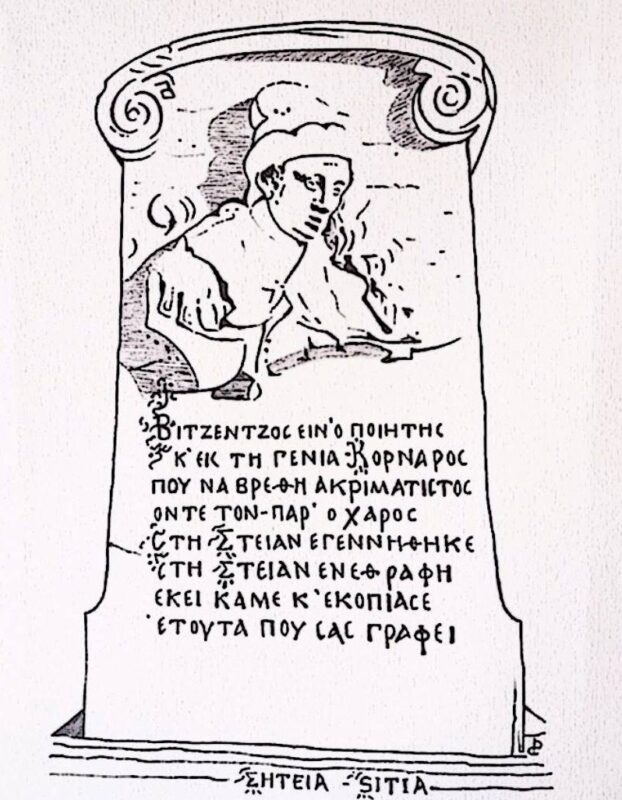 ΒΙΤΖΕΝΤΖΟΣ ΕΙΝ'Ο ΠΟΙΗΤΗΣ
Κ'ΕΙΣ ΤΗ ΓΕΝΙΑ ΚΟΡΝΑΡΟΣ
ΠΟΥ ΝΑ ΒΡΕΘΗ ΑΚΡΙΜΑΤΙΣΤΟΣ
ΟΝΤΕ ΤΟΝ-ΠΑΡ' Ο ΧΑΡΟΣ
ΣΤΗ ΣΤΕΙΑΝ ΕΓΕΝΝΗΘΗΚΕ
ΣΤΗ ΣΤΕΙΑΝ ΕΝΕΘΡΑΦΗ
ΕΚΕΙ ΚΑΜΕ Κ'ΕΚΟΠΙΑΣΕ
'ΕΤΟΥΤΑ ΠΟΥ ΣΑΣ ΓΡΑΦΕΙ
ΣΗΤΕΙΑ - SITIA